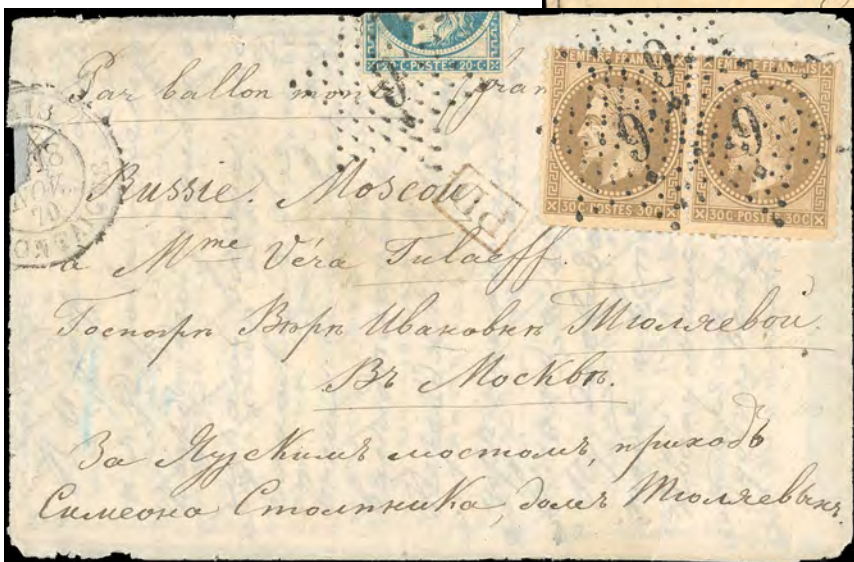 20·C·POSTES·20·C·
EMPIRE FRANÇAIS
EMPIRE FRANÇAIS
30C POSTES 30C
30C POSTES 30C
9
9
9
9
18
NOV.
70
PD
Par ballon
Russie. Moscou
a Mme Véra Tulaeff.
Госпожѣ Вѣрѣ Ивановнѣ Тюляевой.
Въ Москвѣ.
За Яузскимъ мостомъ, приходъ
Симеона Столпника, домъ Тюляевыхъ.